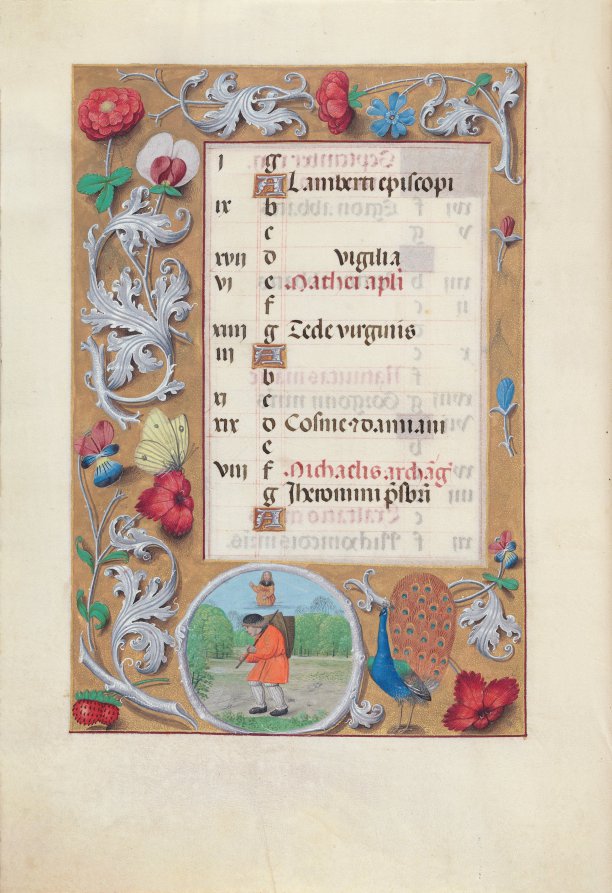 i g
A Lamberti episcopi
ix b
c
xvii d vigilia
vi e Mathei apl̃i
f
xiiii g Tecle virginis
iii A
b
xi c
xix d Cosme ⁊ damiani
e
viii f Michaelis archãg
g Jheronimi p̃sbr̃i
A